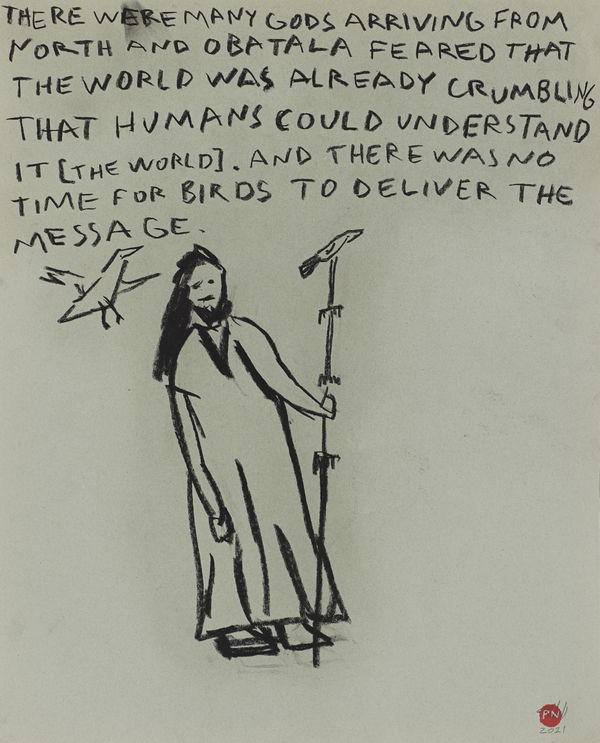 THERE WERE MANY GODS ARRIVING FROM
NORTH AND OBATALA FEARED THAT
THE WORLD WAS ALREADY CRUMBLING
THAT HUMANS COULD UNDERSTAND
IT [THE WORLD]. AND THERE WAS NO
TIME FOR BIRDS TO DELIVER THE
MESSAGE.
PN
2021